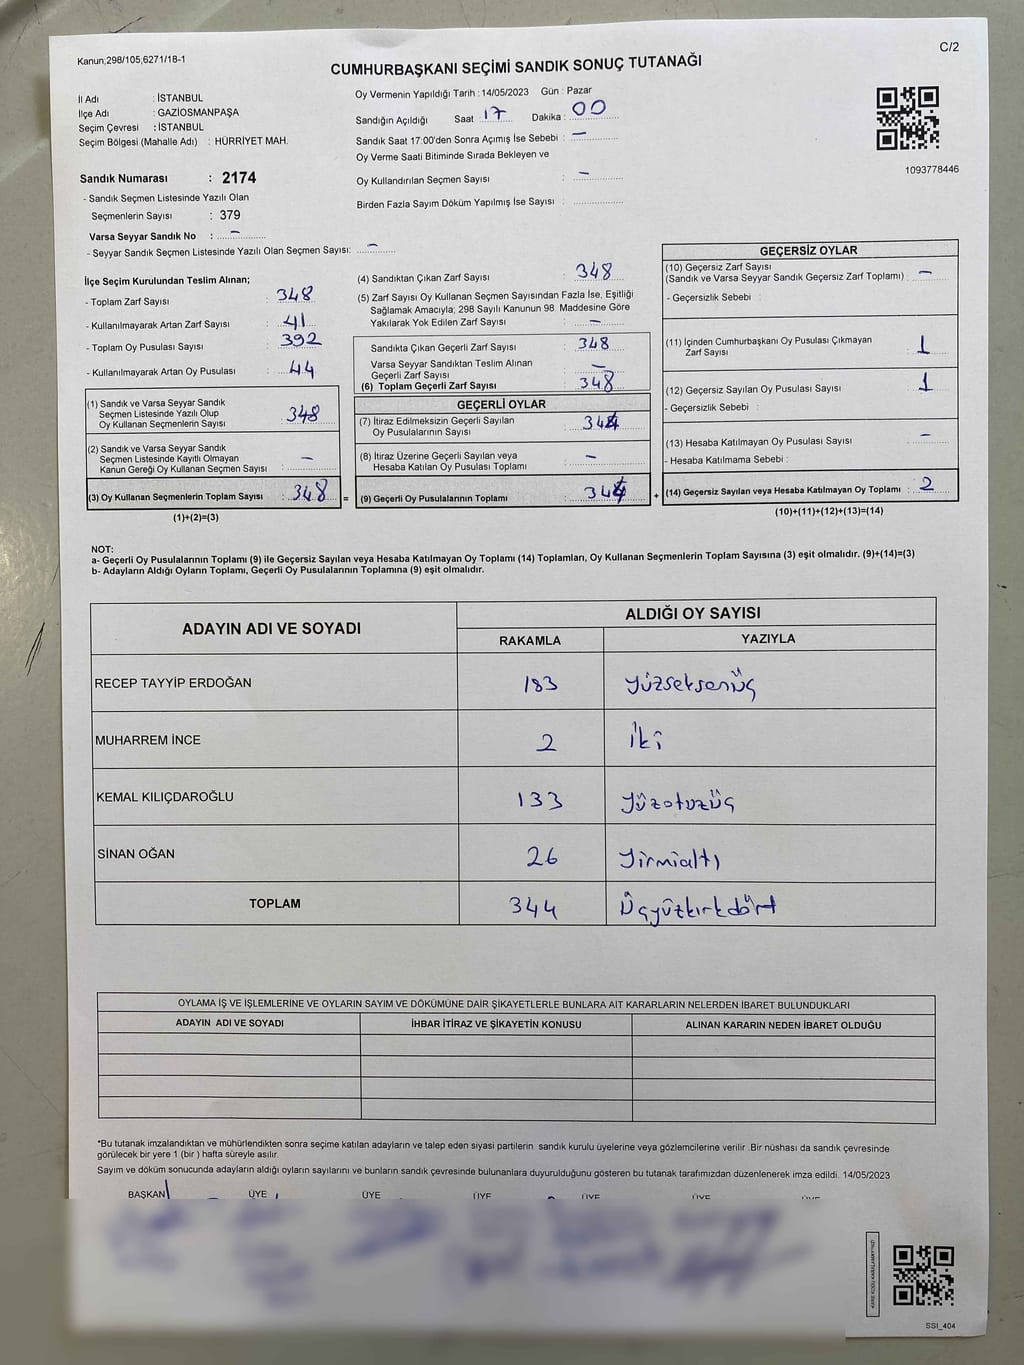 Kanun;298/105,6271/18-1
C/2
CUMHURBAŞKANI SEÇİMİ SANDIK SONUÇ TUTANAĞI
İl Adı : İSTANBUL
İlçe Adı : GAZİOSMANPAŞA
Seçim Çevresi : İSTANBUL
Seçim Bölgesi (Mahalle Adı) : HÜRRİYET MAH.
Sandık Numarası : 2174
- Sandık Seçmen Listesinde Yazılı Olan
Seçmenlerin Sayısı : 379
Varsa Seyyar Sandık No : -
- Seyyar Sandık Seçmen Listesinde Yazılı Olan Seçmen Sayısı: -
Oy Vermenin Yapıldığı Tarih : 14/05/2023 Gün : Pazar
Sandığın Açıldığı Saat : 17 Dakika : 00
Sandık Saat 17:00'den Sonra Açımış İse Sebebi : -
Oy Verme Saati Bitiminde Sırada Bekleyen ve
Oy Kullandırılan Seçmen Sayısı : -
Birden Fazla Sayım Döküm Yapılmış İse Sayısı :
1093778446
İlçe Seçim Kurulundan Teslim Alınan;
- Toplam Zarf Sayısı : 348
- Kullanılmayarak Artan Zarf Sayısı : 41
- Toplam Oy Pusulası Sayısı : 392
- Kullanılmayarak Artan Oy Pusulası : 44
(1) Sandık ve Varsa Seyyar Sandık
Seçmen Listesinde Yazılı Olup
Oy Kullanan Seçmenlerin Sayısı : 348
(2) Sandık ve Varsa Seyyar Sandık
Seçmen Listesinde Kayıtlı Olmayan
Kanun Gereği Oy Kullanan Seçmen Sayısı : -
(3) Oy Kullanan Seçmenlerin Toplam Sayısı : 348 =
(1)+(2)=(3)
(4) Sandıktan Çıkan Zarf Sayısı : 348
(5) Zarf Sayısı Oy Kullanan Seçmen Sayısından Fazla İse, Eşitliği
Sağlamak Amacıyla; 298 Sayılı Kanunun 98. Maddesine Göre
Yakılarak Yok Edilen Zarf Sayısı : -
Sandıkta Çıkan Geçerli Zarf Sayısı : 348
Varsa Seyyar Sandıktan Teslim Alınan
Geçerli Zarf Sayısı : -
(6) Toplam Geçerli Zarf Sayısı : 348
GEÇERLİ OYLAR
(7) İtiraz Edilmeksizin Geçerli Sayılan
Oy Pusulalarının Sayısı : 344
(8) İtiraz Üzerine Geçerli Sayılan veya
Hesaba Katılan Oy Pusulası Toplamı : -
(9) Geçerli Oy Pusulalarının Toplamı : 344 +
GEÇERSİZ OYLAR
(10) Geçersiz Zarf Sayısı
(Sandık ve Varsa Seyyar Sandık Geçersiz Zarf Toplamı) : -
- Geçersizlik Sebebi :
(11) İçinden Cumhurbaşkanı Oy Pusulası Çıkmayan
Zarf Sayısı : 1
(12) Geçersiz Sayılan Oy Pusulası Sayısı : 1
- Geçersizlik Sebebi :
(13) Hesaba Katılmayan Oy Pusulası Sayısı : -
- Hesaba Katılmama Sebebi :
(14) Geçersiz Sayılan veya Hesaba Katılmayan Oy Toplamı : 2
(10)+(11)+(12)+(13)=(14)
NOT:
a- Geçerli Oy Pusulalarının Toplamı (9) ile Geçersiz Sayılan veya Hesaba Katılmayan Oy Toplamı (14) Toplamları, Oy Kullanan Seçmenlerin Toplam Sayısına (3) eşit olmalıdır. (9)+(14)=(3)
b- Adayların Aldığı Oyların Toplamı, Geçerli Oy Pusulalarının Toplamına (9) eşit olmalıdır.
ADAYIN ADI VE SOYADI
ALDIĞI OY SAYISI
RAKAMLA YAZIYLA
RECEP TAYYİP ERDOĞAN 183 Yüzseksenüç
MUHARREM İNCE 2 İki
KEMAL KILIÇDAROĞLU 133 Yüzotuzüç
SİNAN OĞAN 26 Yirmialtı
TOPLAM 344 Üçyüzkırkdört
OYLAMA İŞ VE İŞLEMLERİNE VE OYLARIN SAYIM VE DÖKÜMÜNE DAİR ŞİKAYETLERLE BUNLARA AİT KARARLARIN NELERDEN İBARET BULUNDUKLARI
ADAYIN ADI VE SOYADI İHBAR İTİRAZ VE ŞİKAYETİN KONUSU ALINAN KARARIN NEDEN İBARET OLDUĞU
*Bu tutanak imzalandıktan ve mühürlendikten sonra seçime katılan adayların ve talep eden siyasi partilerin sandık kurulu üyelerine veya gözlemcilerine verilir .Bir nüshası da sandık çevresinde
görülecek bir yere 1 (bir ) hafta süreyle asılır.
Sayım ve döküm sonucunda adayların aldığı oyların sayılarını ve bunların sandık çevresinde bulunanlara duyurulduğunu gösteren bu tutanak tarafımızdan düzenlenerek imza edildi. 14/05/2023
BAŞKAN ÜYE ÜYE ÜYE ÜYE ÜYE ÜYE
SSI_404